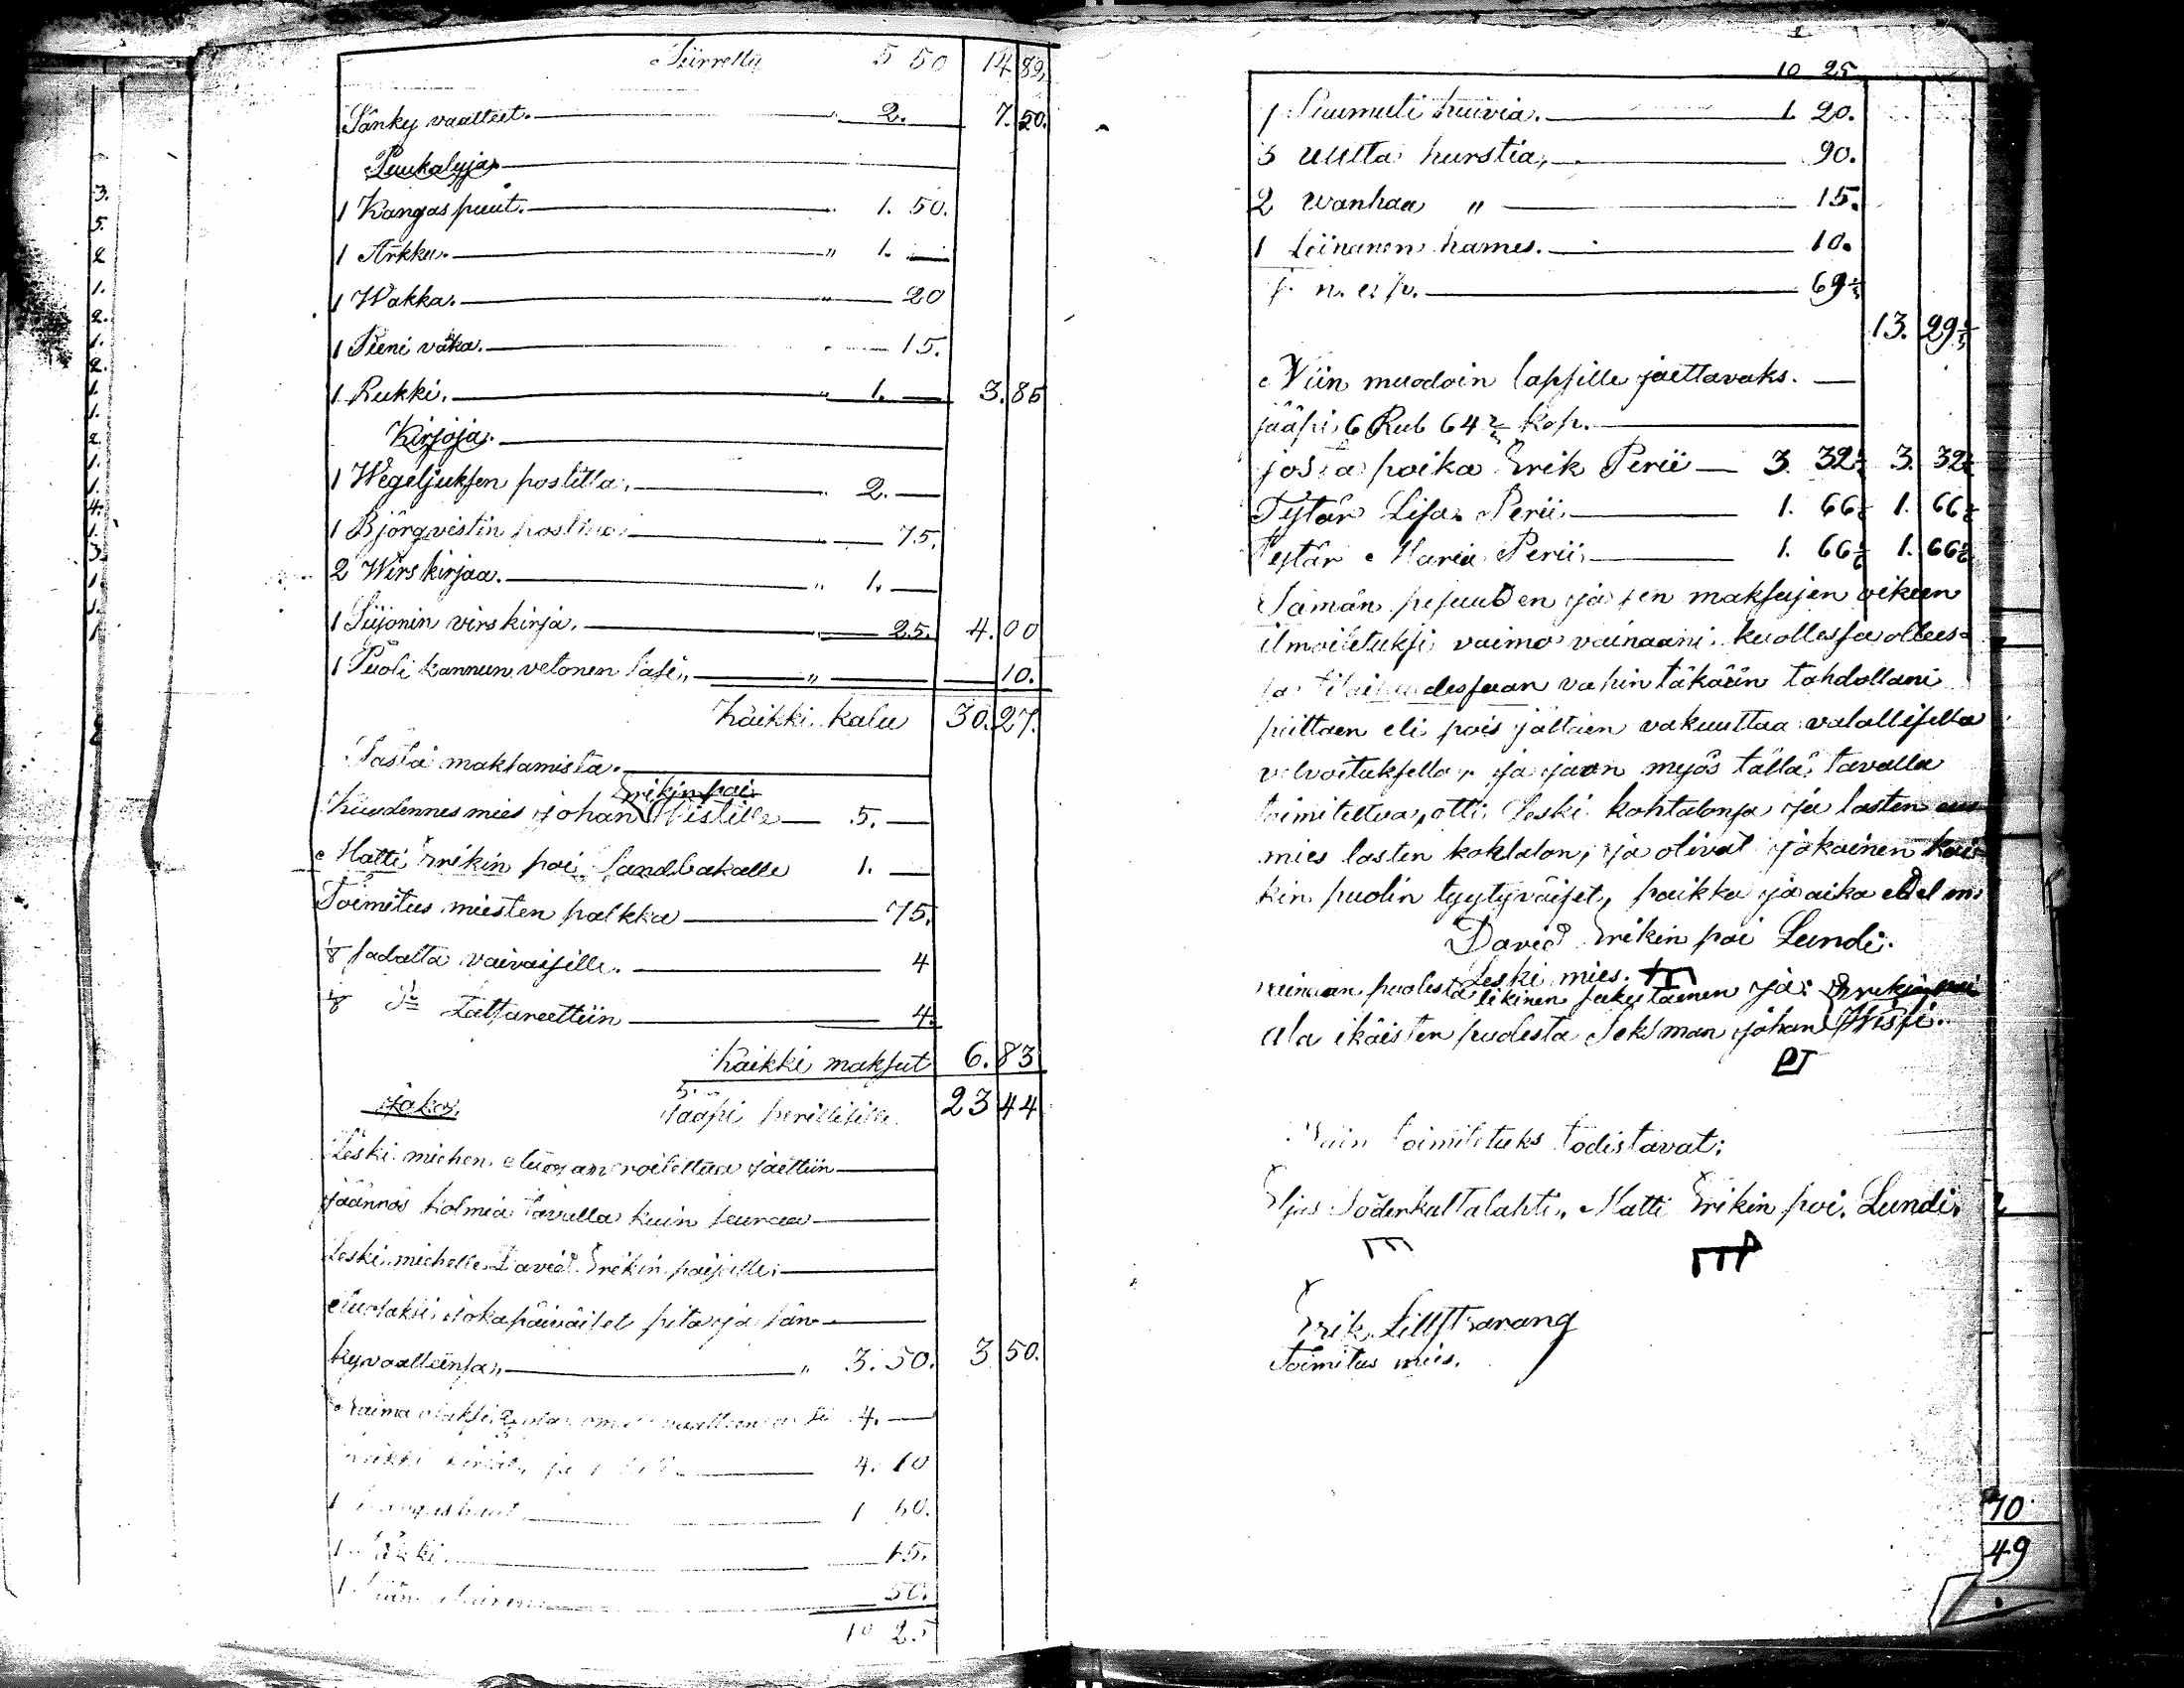 Siirretty 5 50 14 89.
Sänky vaatteet. " 2. 7. 50.
Puukaluja.
1 Kangas puut. 1. 50.
1 Arkku. " 1. —
1 Wakka. " 20
1 Pieni vaka. 15.
1 Rukki. " 1. — 3. 85
Kirjoja.
1 Wegeljuksen postilla. 2. —
1 Björqvistin postilla 75.
2 Wirs kirjaa. " 1. —
1 Siijonin virs kirja. " 25. 4. 00
1 Puoli kannun vetonen lasi " 10.
Kaikki kalu 30. 27.
Tästä maksamista.
Erikin poi
Kuudennes mies johan Wistille 5. —
Matti Erikin poi Sandbakalle 1. —
Toimitus miesten palkka 75.
1/8 sadalta vaivaisille. 4
1/8 Do Latsareettiin 4.
Kaikki maksut 6. 83
Jako. Jääpi perillisille 23 44
Leski miehen etuosan roitettua jaettiin
jäännös kolmia tavalla kuin seuraa
Leski miehelle David Erikin pojalle:
etuosaksi jokapäiväiset pito ja sän-
kyvaatteensa " 3. 50. 3 50.
4. —
kaikki kirjat, ja 1 lasi 4. 10
1 kangas puut 1 50.
1 15.
1 50.
10 25
10 25
1 huivia. 1. 20.
3 uutta hurstia, 90.
2 wanhaa " 15.
1 Liinanen hames. 10.
69
13. 29
Niin muodoin lapsille jaettavaks.
jääpi 6 Rub 64 2/3 kop.
josta poika Erik Perii 3 32 3. 32
Tytär Lisa Perii 1. 66 1. 66
Tytär Maria Perii 1. 66 1. 66
Tämän pesuuden ja sen maksujen oikeen
ilmoitetuksi vaimo vainaani kuollessa ollees-
sa vahintäkään tahdollani
peittäen eli pois jättäen vakuuttaa valallisella
velvoituksella, ja jaon myös tällä tavalla
toimitettua, otti Leski kohtalonsa ja lasten
mies lasten kohtalon, ja olivat jokainen kai-
kin puolin tyytyväiset, paikka ja aika edel m.
David Erikin poi Lundi.
Leski mies.
vainaan puolesta likinen sukulainen ja: Erikin poi
ala ikäisten puolesta Seksman johan Wisti.
Näin toimitetuks todistavat:
Eljas Söderkultalahti, Matti Erikin poi. Lundi.
Erik Lillstrarang
Toimitus mies.
3.
5.
2
1.
2.
1.
2.
1.
1.
2.
1.
1.
4.
1.
3.
1.
1.
1
10
49